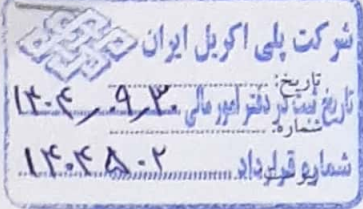 شرکت پلی اکریل ایران
تاریخ:
تاریخ ثبت در دفتر امور مالی ۱۴۰۴٫۹٫۳۰
شماره:
شماره قرارداد ۱۴۰۴۵۰۲